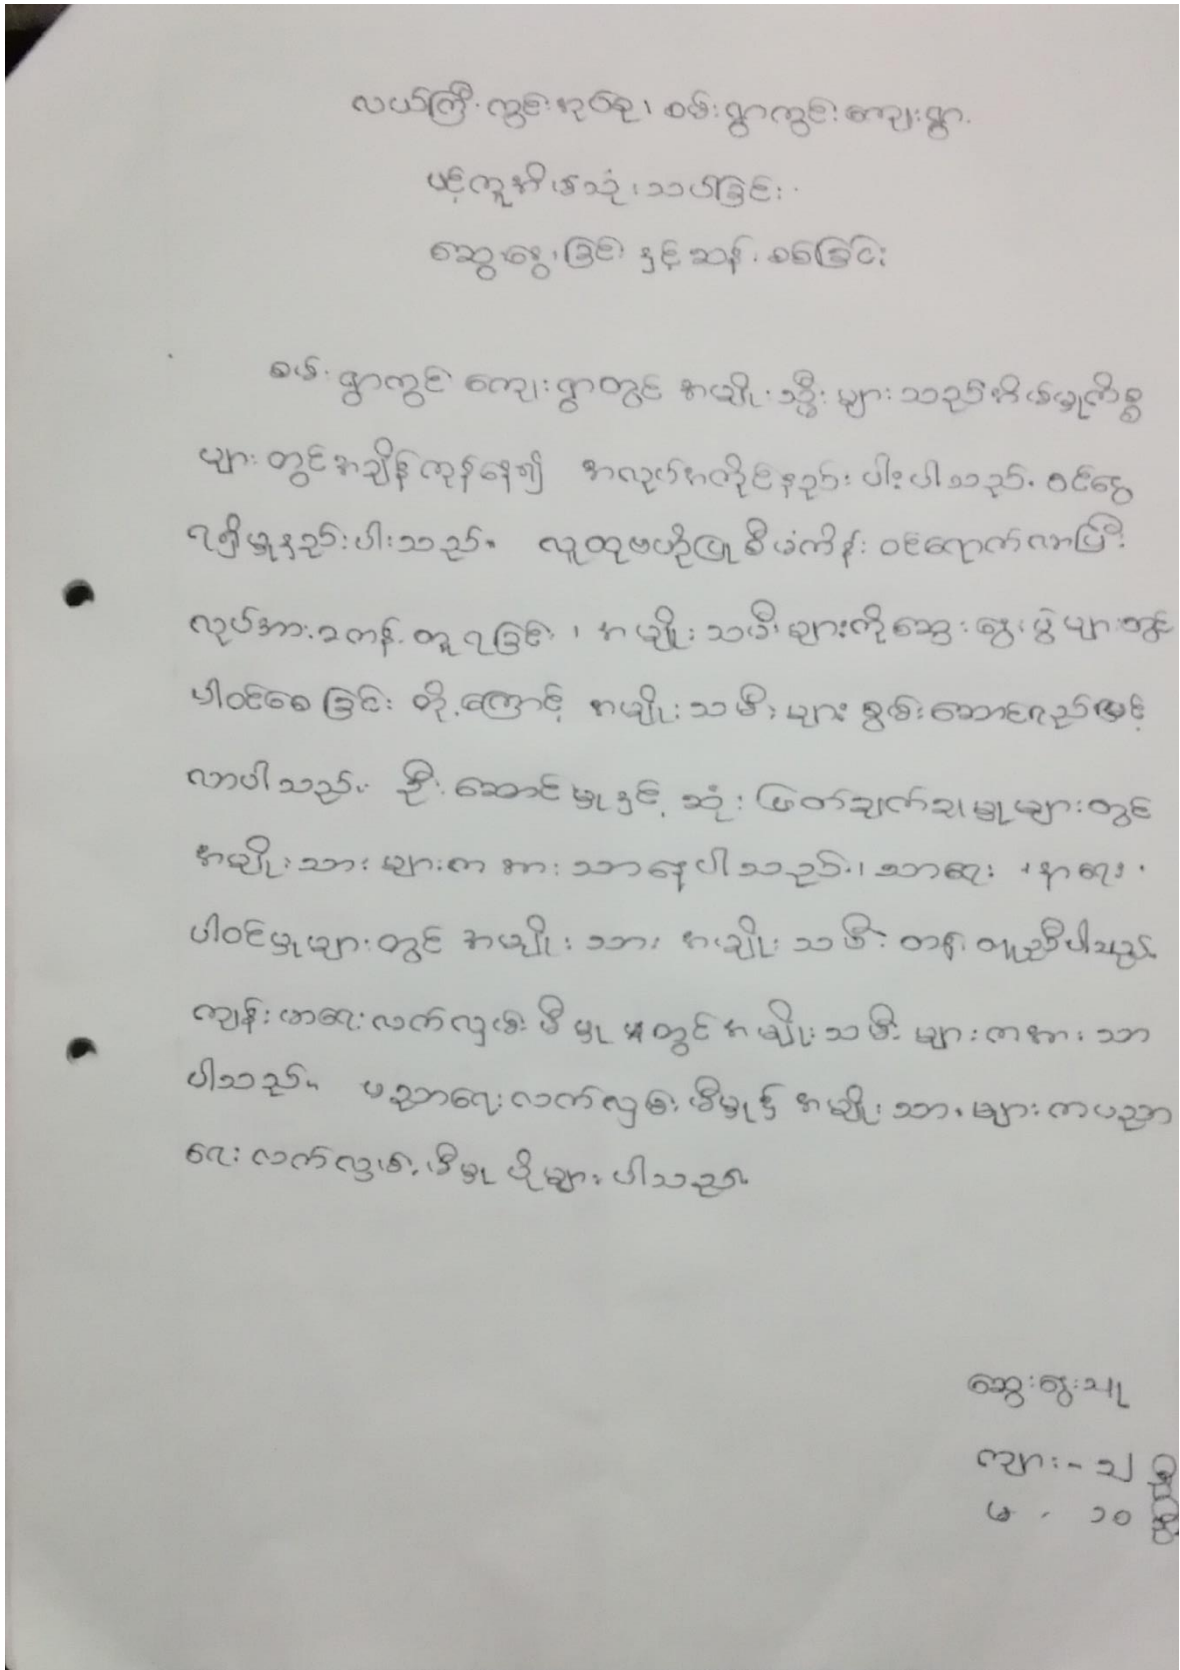 လယ်ကြီးကွင်းအုပ်စု၊ စမ်းရွာကွင်းကျေးရွာ
ပင့်ကူအိမ်သုံးသပ်ခြင်း
ဆွေးနွေးခြင်းနှင့်ဆန်းစစ်ခြင်း
စမ်းရွာကွင်းကျေးရွာတွင် အမျိုးသ္မီးများသည်အိမ်မှုကိစ္စ
များတွင်အချိန်ကုန်နေ၍ အလုပ်အကိုင်နည်းပါးပါသည်။ ဝင်ငွေ
ရရှိမှုနည်းပါးသည်။ လူထုဗဟိုပြုစီမံကိန်းဝင်ရောက်လာပြီး
လုပ်အားခတန်းတူရခြင်း၊ အမျိုးသမီးများကိုဆွေးနွေးပွဲများတွင်
ပါဝင်စေခြင်းတို့ကြောင့် အမျိုးသမီးများစွမ်းဆောင်ရည်မြင့်
လာပါသည်။ ဦးဆောင်မှုနှင့် ဆုံးဖြတ်ချက်ချမှုများတွင်
အမျိုးသားများကအားသာနေပါသည်။ သာရေး၊ နာရေး
ပါဝင်မှုများတွင် အမျိုးသား အမျိုးသမီး တန်းတူညီပါသည်။
ကျန်းမာရေးလက်လှမ်းမီမှုတွင်အမျိုးသမီးများကအားသာ
ပါသည်။ ပညာရေးလက်လှမ်းမီမှု၌ အမျိုးသားများကပညာ
ရေးလက်လှမ်းမီမှုပိုများပါသည်။
ဆွေးနွေးသူ
ကျား - ၁၂ ဦး
မ - ၁၀ ဦး